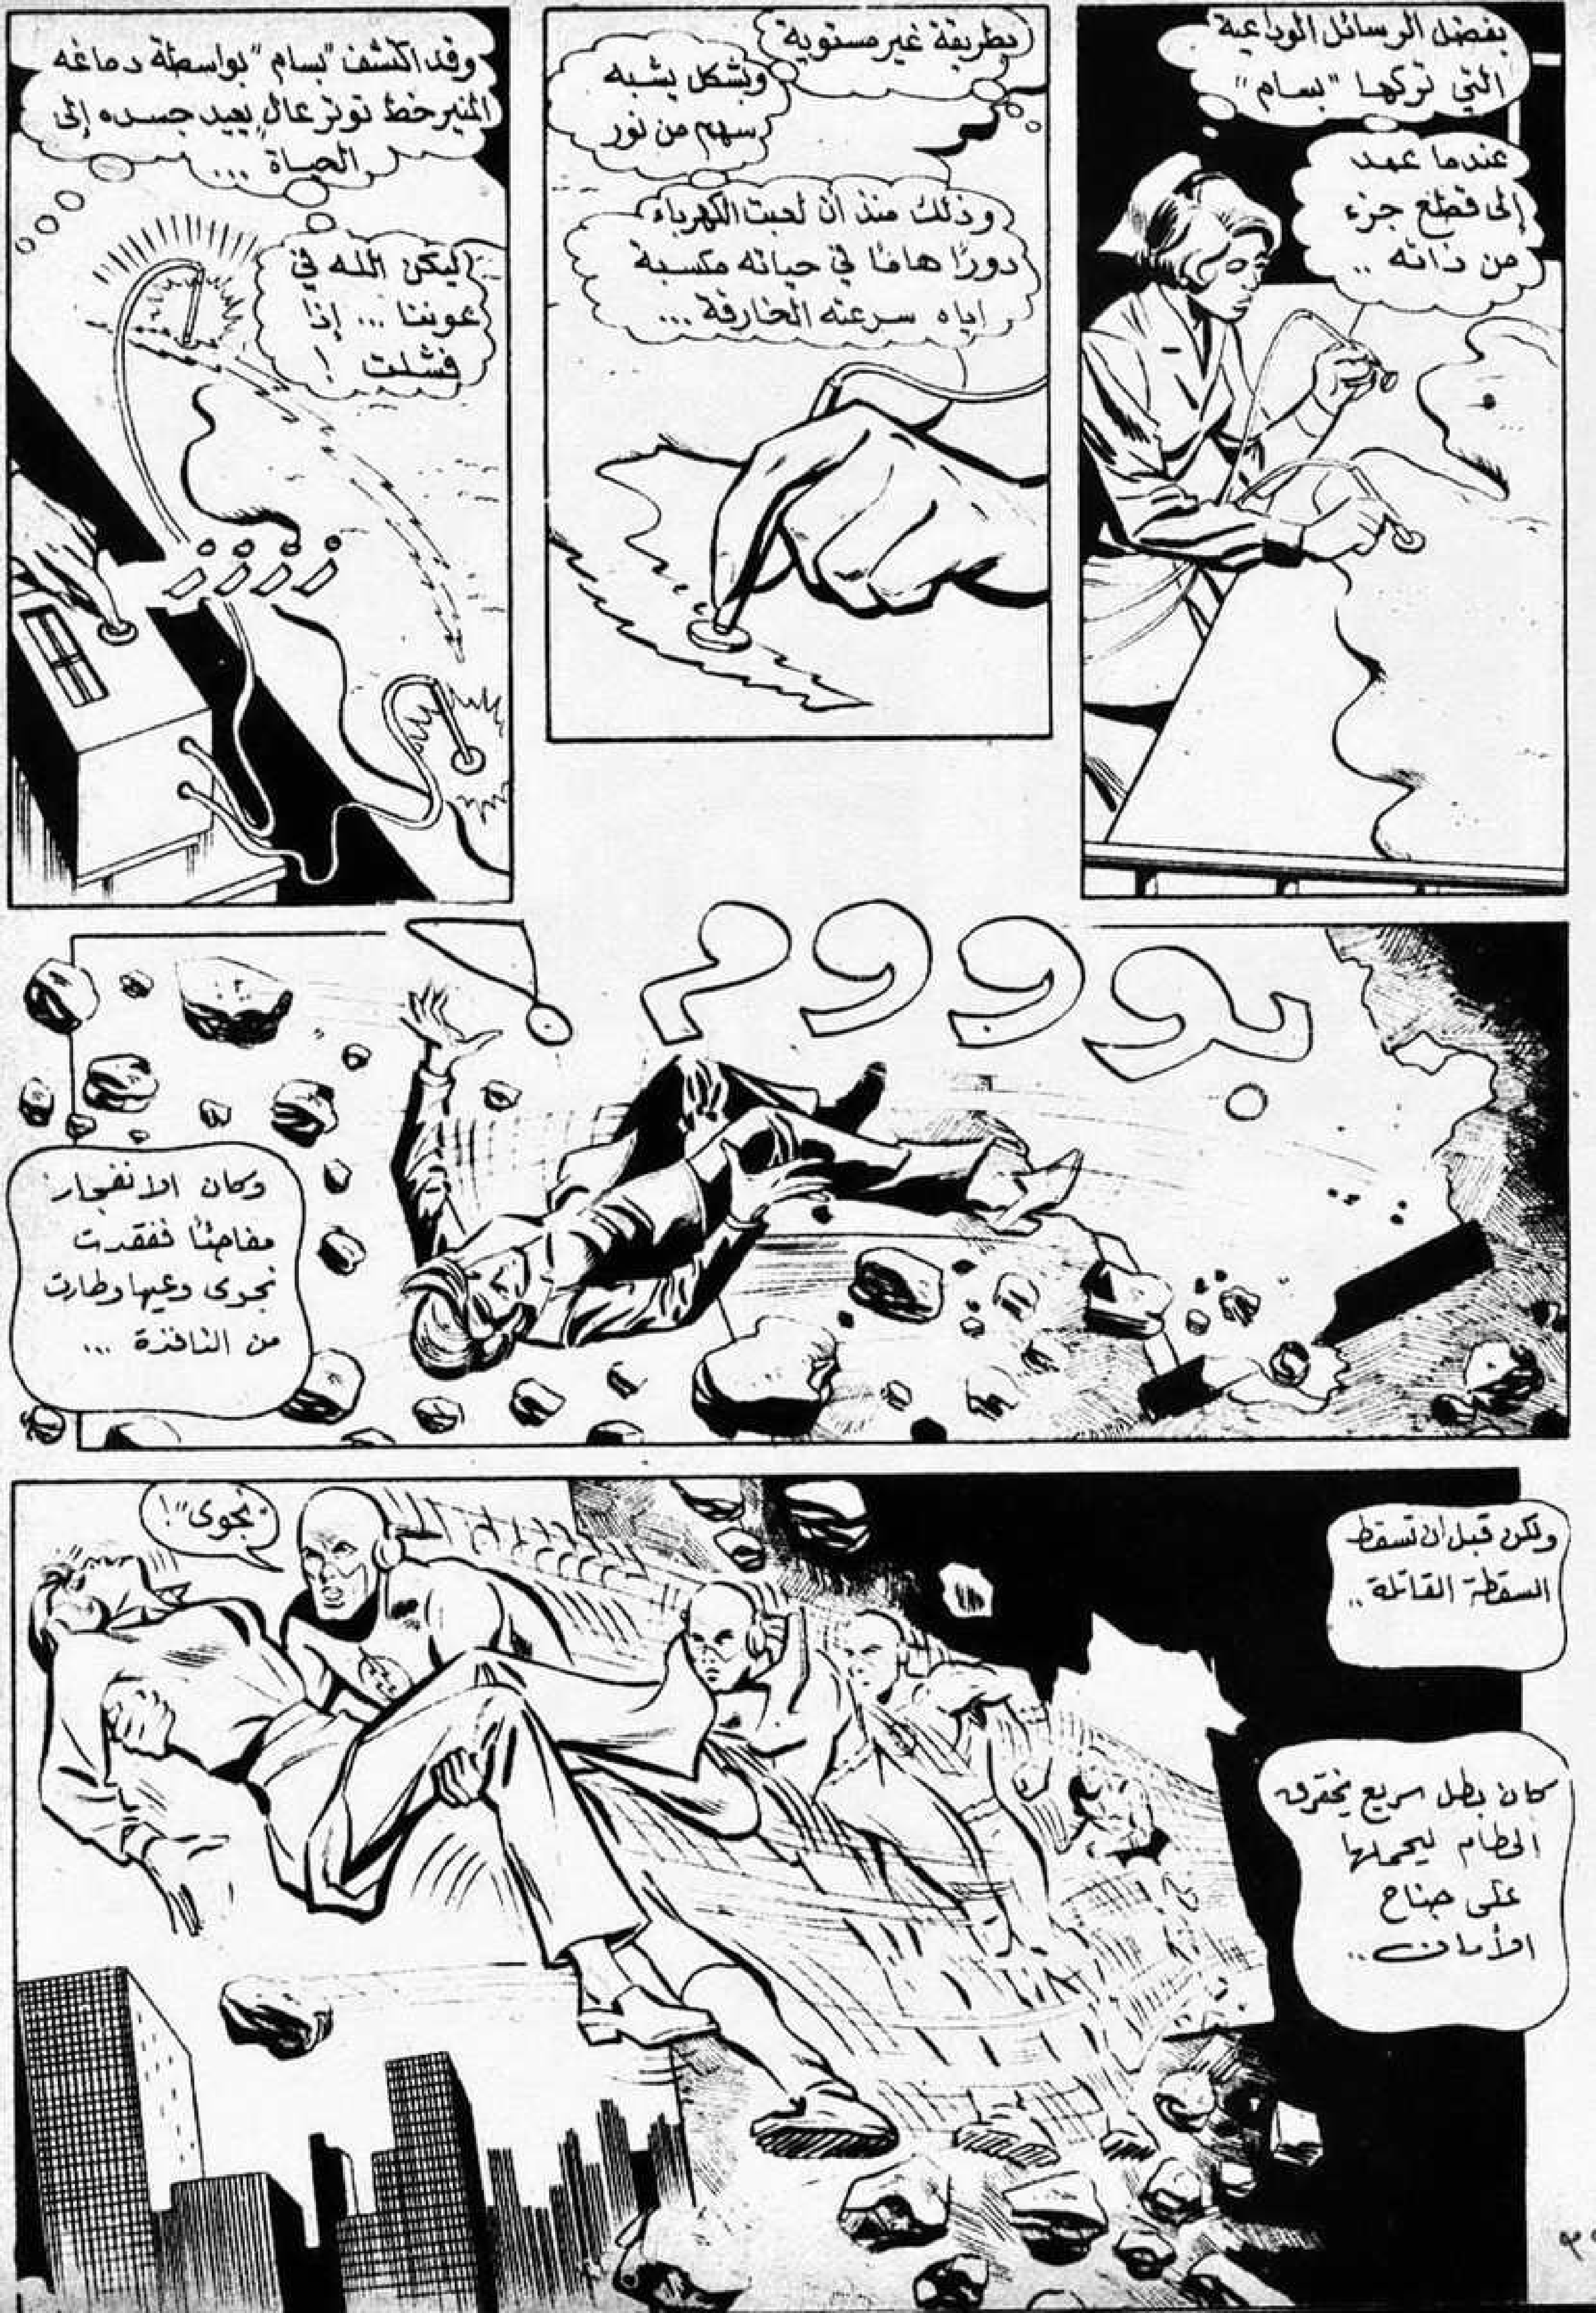 بفضل الرسائل الوداعية
التي تركها "بسام"
عندما عمد
إلى قطع جزء
من ذاته ..
بطريقة غير مستوية
وبشكل يشبه
سهم من نور
وذلك منذ أن لعبت الكهرباء
دورًا هامًا في حياته مكسبة
اياه سرعته الخارقة ...
وقد اكتشف "بسام" بواسطة دماغه
المنير خط توتر عالٍ يعيد جسده إلى
الحياة ...
ليكن الله في
عوننا ... إذا
فشلت !
بووووم !
وكان الانفجار
مفاجئًا ففقدت
نجوى وعيها وطارت
من النافذة ...
ولكن قبل ان تسقط
السقطة القاتلة ..
كان بطل سريع يخترق
الحطام ليحملها
على جناح
الأمان ..
"نجوى"!